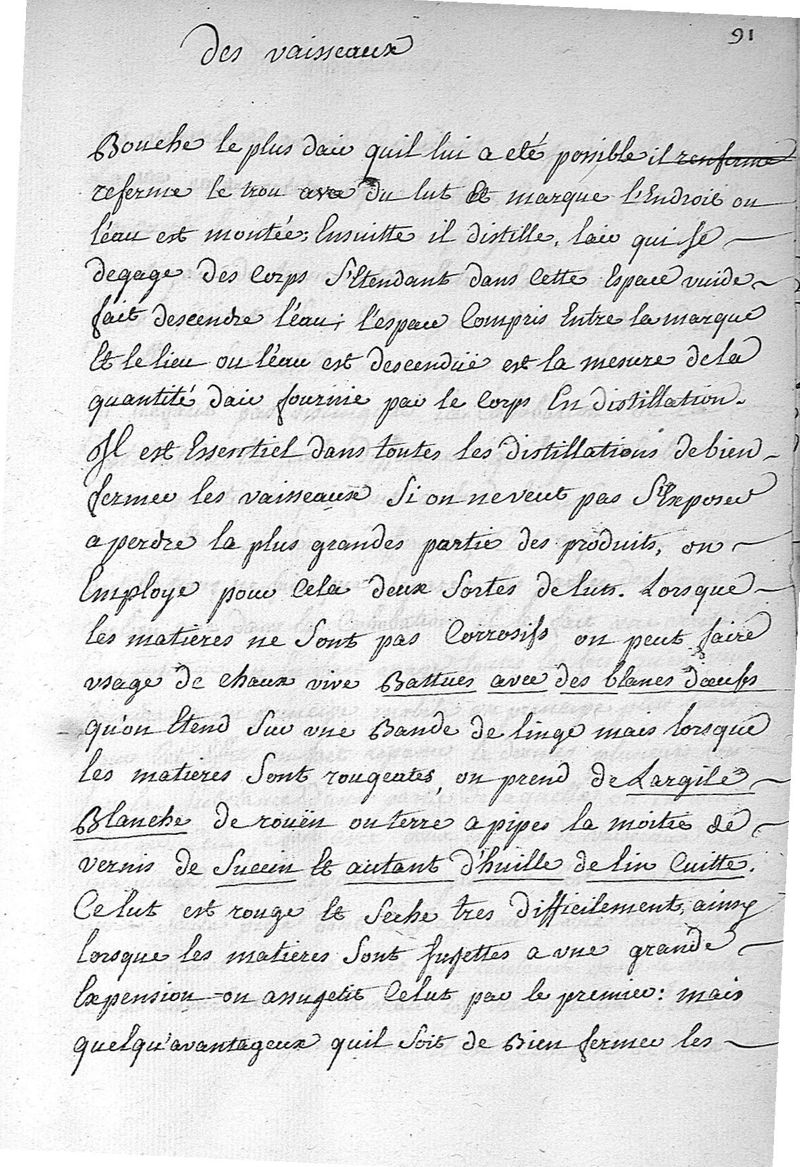 91
des vaisseaux
Bouche le plus dair quil lui a eté possible il renferme
referme le trou avec du lut Et marque l'Endroit ou
léau est montée; Ensuitte il distille, lair qui se
degage des Corps S'Etendant dans Cette Espace vuide
fait descendre léau; l'espace Compris Entre la marque
Et le lieu ou léau est descendüe est la mesure de la
quantité dair fournie par le Corps En distillation.
Il est Essentiel dans toutes les distillations de bien
fermer les vaisseaux Si on ne veut pas S'Exposer
a perdre la plus grandes partie des produits, on
Employe pour Cela deux Sortes de luts. Lorsque
les matières ne Sont pas Corrosifs on peut faire
usage de Chaux vive Battues avec des blancs dœufs
qu'on Etend Sur vne Bande de linge mais lorsque
les matieres Sont rougeates, on prend de Largile
Blanche de roüen ou terre a pipes la moitie de
vernis de Succin Et autant d'huille de lin Cuitte.
Ce lut est rouge Et Seche tres difficilement, ainsy
lorsque les matieres Sont sujettes a vne grande
Expension on assugetit Ce lut par le premier: mais
quelqu'avantageux quil Soit de Bien fermer les